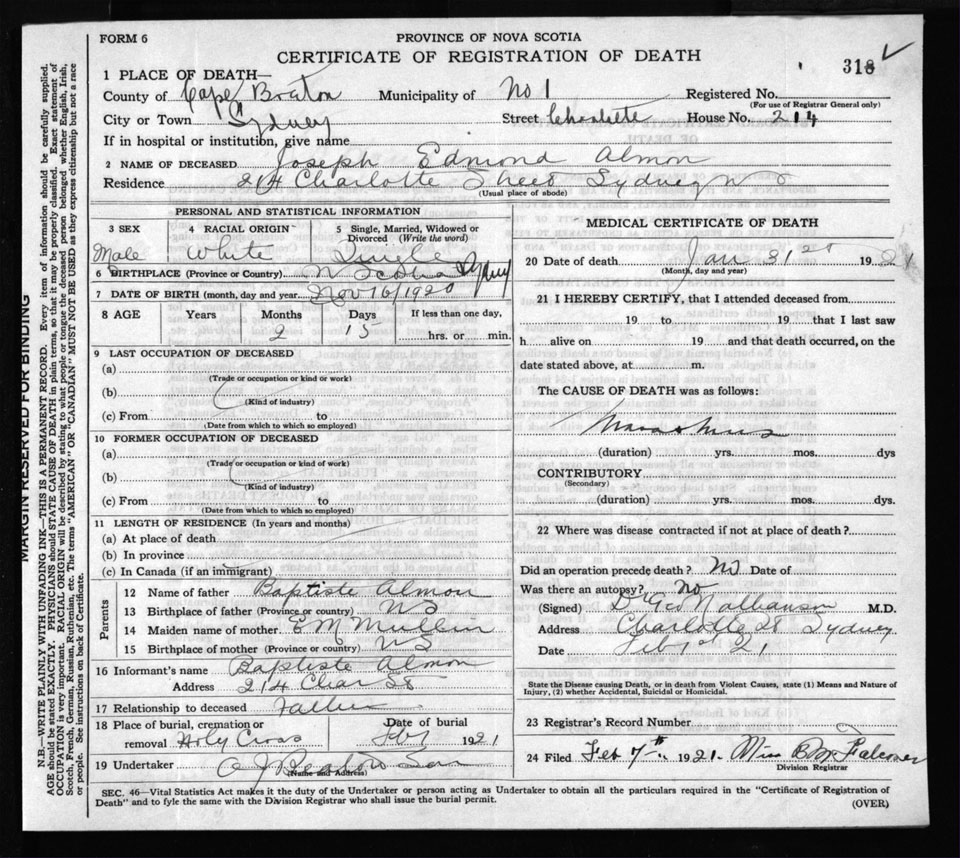 FORM 6
PROVINCE OF NOVA SCOTIA
CERTIFICATE OF REGISTRATION OF DEATH
318
1 PLACE OF DEATH—
County of Cape Breton Municipality of No 1 Registered No.
(For use of Registrar General only)
City or Town Sydney Street Charlotte House No. 214
If in hospital or institution, give name
2 NAME OF DECEASED Joseph Edmond Almon
Residence 214 Charlotte Street Sydney N S
(Usual place of abode)
PERSONAL AND STATISTICAL INFORMATION
3 SEX 4 RACIAL ORIGIN 5 Single, Married, Widowed or Divorced (Write the word)
Male White Single
6 BIRTHPLACE (Province or Country) N Scotia Sydney
7 DATE OF BIRTH (month, day and year) Nov 16/1920
8 AGE Years Months Days If less than one day,
2 15 hrs. or min.
9 LAST OCCUPATION OF DECEASED
(a)
(Trade or occupation or kind or work)
(b)
(Kind of industry)
(c) From to
(Date from which to which so employed)
10 FORMER OCCUPATION OF DECEASED
(a)
(Trade or occupation or kind of work)
(b)
(Kind of industry)
(c) From to
(Date from which to which so employed)
11 LENGTH OF RESIDENCE (In years and months)
(a) At place of death
(b) In province
(c) In Canada (if an immigrant)
Parents
12 Name of father Baptiste Almon
13 Birthplace of father (Province or country) N S
14 Maiden name of mother E M Mullin
15 Birthplace of mother (Province or country) N S
16 Informant's name Baptiste Almon
Address 214 Char St
17 Relationship to deceased Father
18 Place of burial, cremation or removal Holy Cross Date of burial Feb 1 1921
19 Undertaker A J Beaton Son
(Name and Address)
MEDICAL CERTIFICATE OF DEATH
20 Date of death Jan 31st 1921
(Month, day and year)
21 I HEREBY CERTIFY, that I attended deceased from
19 to 19 that I last saw
h alive on 19 and that death occurred, on the
date stated above, at m.
The CAUSE OF DEATH was as follows:
Marasmus
(duration) yrs. mos. dys
CONTRIBUTORY
(Secondary)
(duration) yrs. mos. dys.
22 Where was disease contracted if not at place of death?
Did an operation precede death? No Date of
Was there an autopsy? No
(Signed) Dr Geo M.D.
Address Charlotte St Sydney
Date Feb 1st 21
State the Disease causing Death, or in death from Violent Causes, state (1) Means and Nature of
Injury, (2) whether Accidental, Suicidal or Homicidal.
23 Registrar's Record Number
24 Filed Feb 7th 1921. Miss B M Falconer
Division Registrar
SEC. 46—Vital Statistics Act makes it the duty of the Undertaker or person acting as Undertaker to obtain all the particulars required in the "Certificate of Registration of
Death" and to fyle the same with the Division Registrar who shall issue the burial permit.
(OVER)
MARGIN RESERVED FOR BINDING
N.B.—WRITE PLAINLY WITH UNFADING INK—THIS IS A PERMANENT RECORD. Every item of information should be carefully supplied.
AGE should be stated EXACTLY. PHYSICIANS should STATE CAUSE OF DEATH in plain terms, so that it may be properly classified. Exact statement of
OCCUPATION is very important. RACIAL ORIGIN will be described by stating to what people or tongue the deceased person belonged whether English, Irish,
Scotch, French, German, Russian, Ruthenian, etc. The terms "AMERICAN" OR "CANADIAN" MUST NOT BE USED as they express citizenship but not a race
or people. See instructions on back of Certificate.